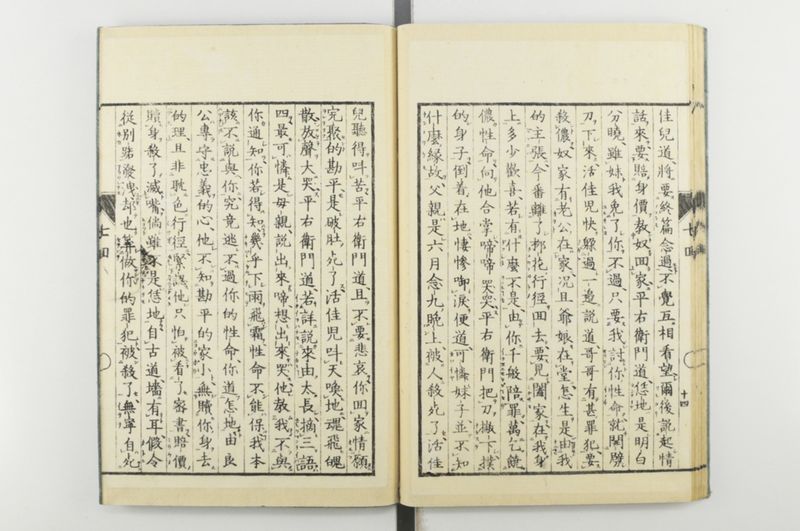 佳兒道將要終篇念過不覺互相看望爾後說起情
話來要賠身價教奴回家平右衛門道恁地是明白
分曉雖妹我免了你不過只要我討你性命就閣落
刀下來活佳兒快躱過一邊說道哥哥有甚罪犯要
殺儂奴家有老公在家况且爺娘在堂怎生是由我
的主張今番離了那花行徑回去要見闔家在我身
上多少歡喜若有什麽不是由你千般陪罪萬乞饒
儂性命向他合掌啼啼哭哭平右衛門把刀撇下撲
的身子倒着在地悽慘啣淚便道可憐妹子並不知
什麽緣故父親是六月念九晚上被人殺死了活佳
兒聽得叫苦平右衛門道且不要悲哀你回家情願
完聚的勘平是破肚死了活佳児叫天喚地魂飛魄
散放聲大哭平右衛門道若詳說來由太長摘三語
四最可憐是母親說出來啼想出來哭他教我不與
你通知你若得知幾乎下雨飛霜性命不能保我本
該不說與你究竟逃不過你的性命你道怎地由良
公專守忠義的心他不知勘平的家小無贖你身去
的理且非耽色行徑緊議他只怕被看了密書賠價
贖身殺了滅嘴倘雖不是恁地自古道墻有耳假令
從別踏發洩却也算做你的罪犯被殺了無寧自死
七回
十四
七回